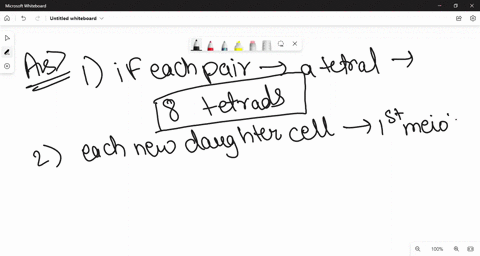 Microsoft Whiteboard
Untitled whiteboard
Ans) 1) if each pair → a tetral →
8 tetrads
2) each new daughter cell → 1st meio
100%